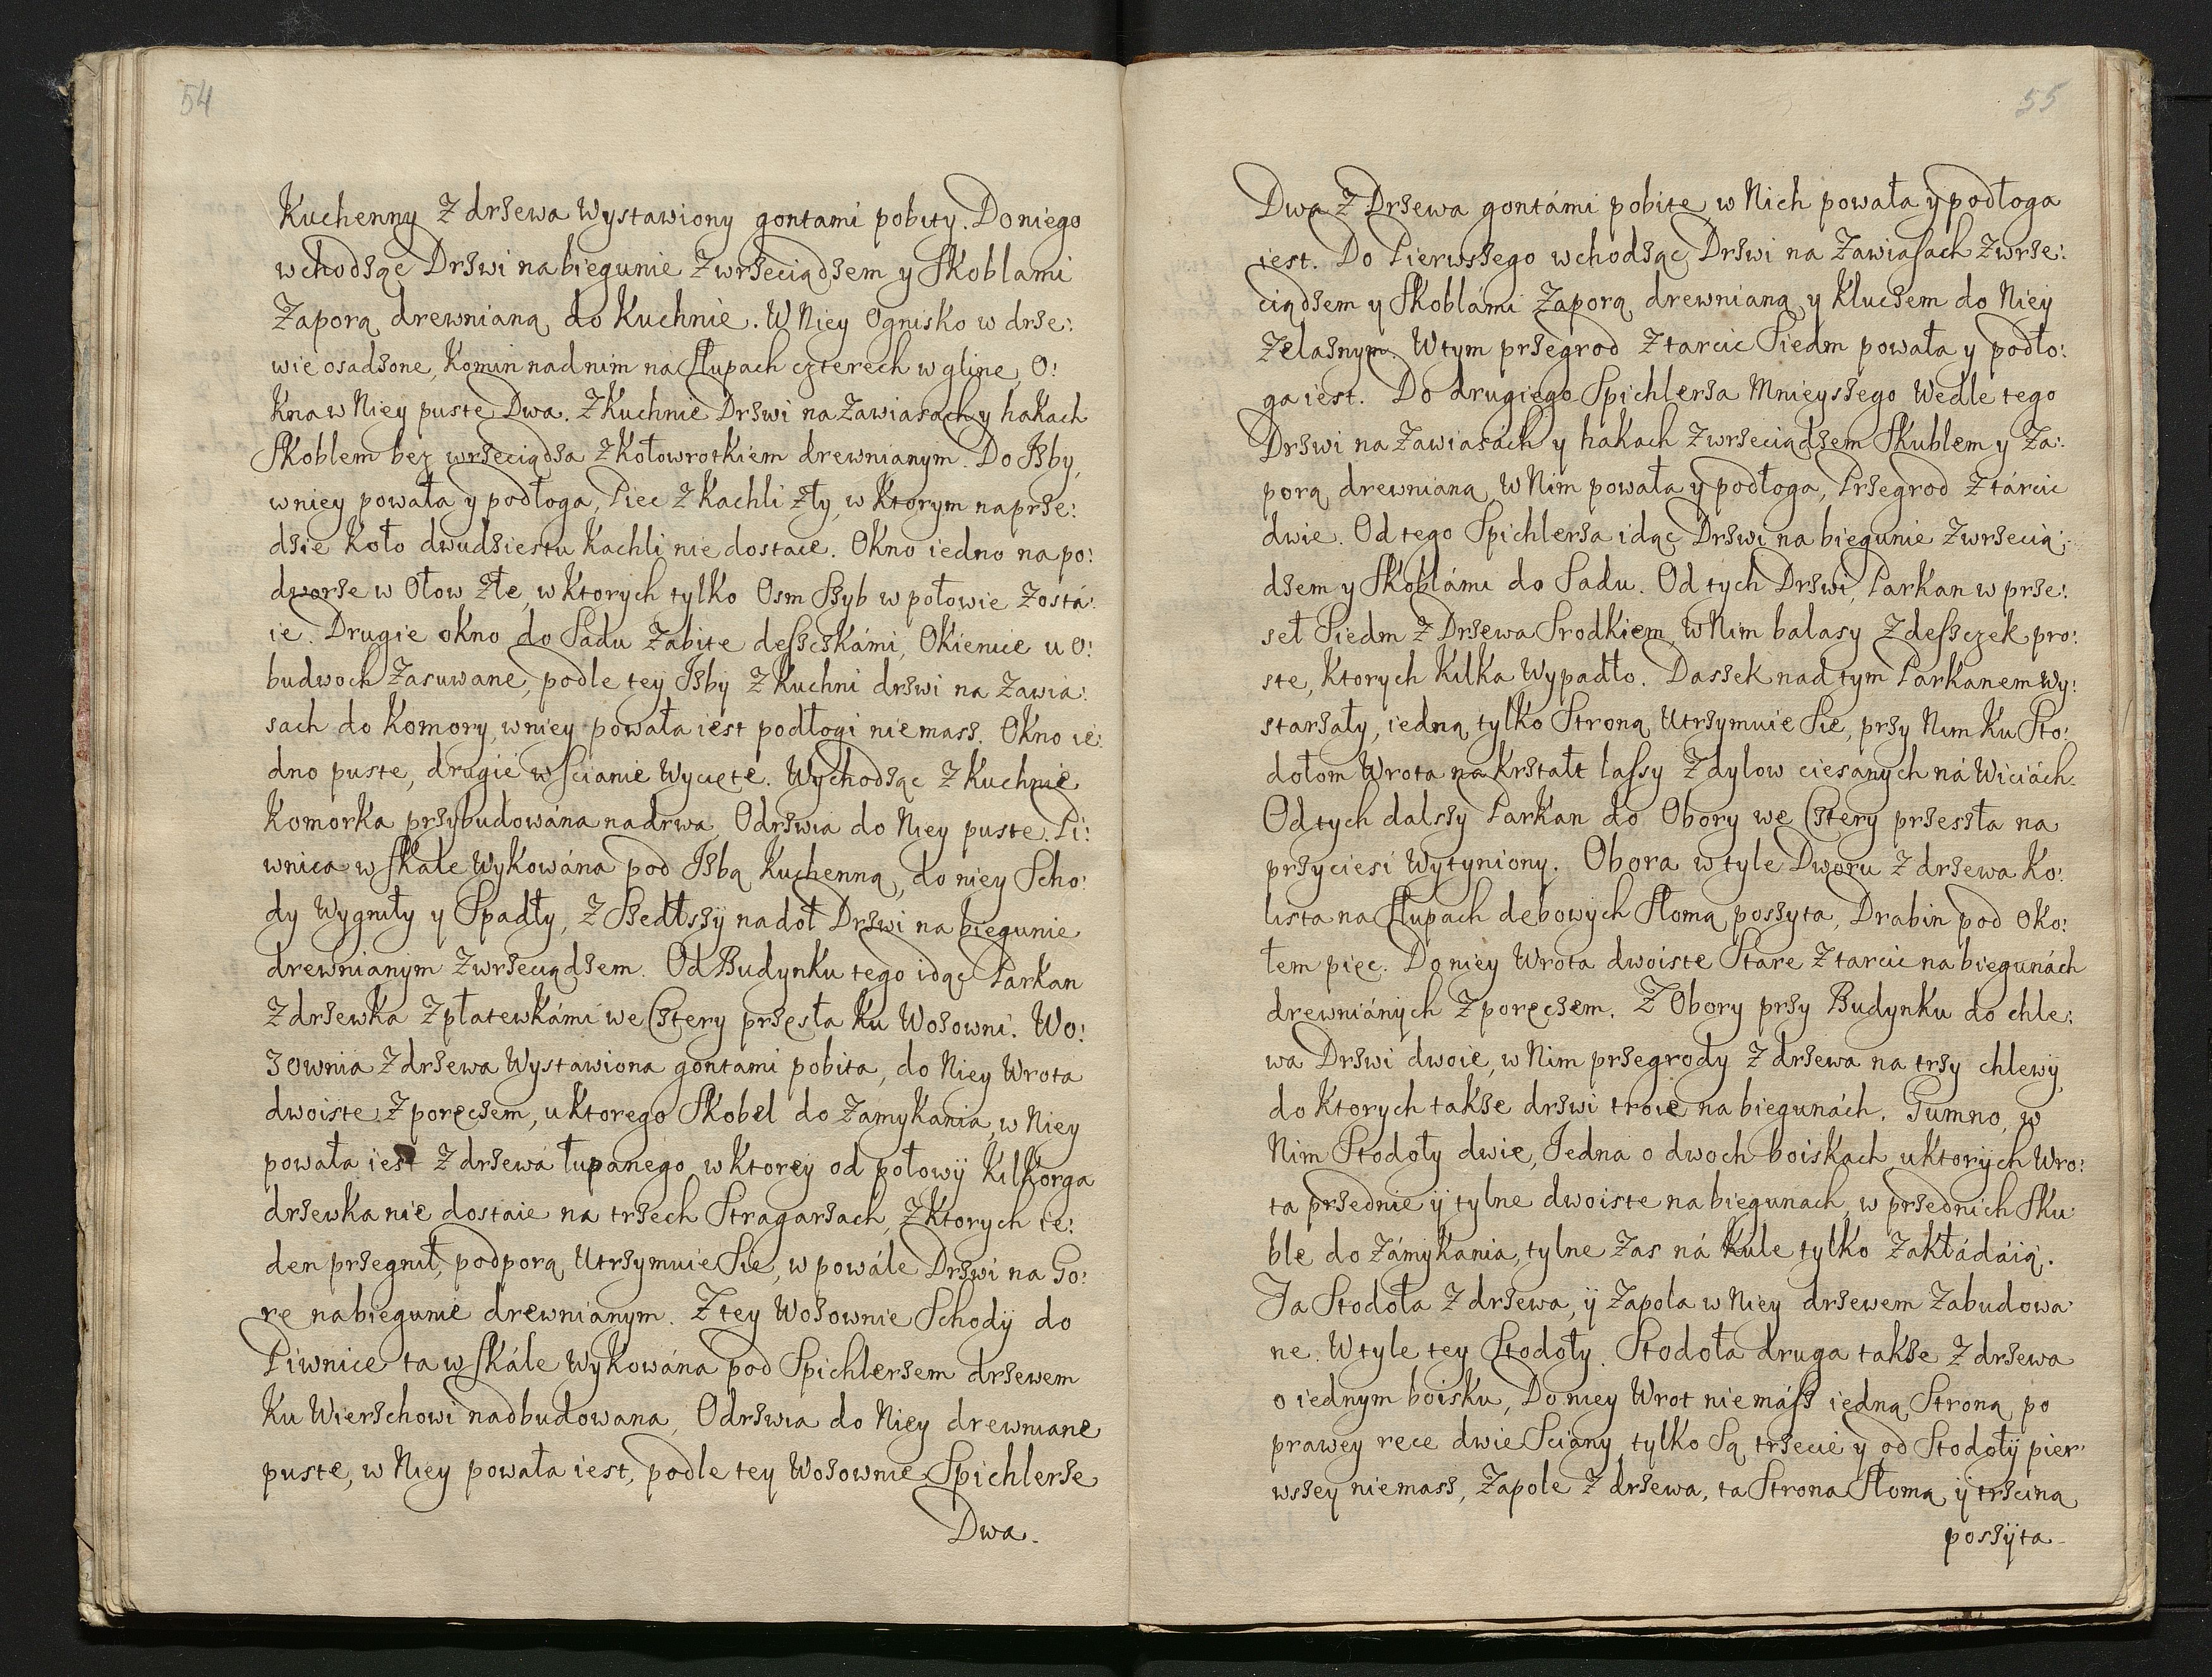 54
Kuchenny Z drzewa Wystawiony gontami pobity. Do niego
wchodząc Drzwi na biegunie Z wrzeciądzem y Skoblami
Zaporą drewnianą do Kuchnie. W Niey Ognisko w drze:
wie osadzone, Komin nad nim na Słupach czterech w glinę, O:
Kna w Niey puste Dwa. Z Kuchnie Drzwi na Zawiasach y hakach
Skoblem bez wrzeciądza Z Kołowrotkiem drewnianym. Do Izby,
w niey powała y podłoga, Piec Z Kachli zły, w Ktorym na prze:
dzie Koło dwudziestu Kachli nie dostaie. Okno iedno na po:
dworze w Ołow Złe, w Ktorych tylko Osm Szyb w połowie Zostá:
ie. Drugie okno do Sadu Zabite deszczkámi, Okienice u o:
budwoch Zasuwane, podle tey Izby Z Kuchni drzwi na Zawia:
sach do Komory, w niey powała iest podłogi nie masz. Okno ie:
dno puste, drugie w Scianie Wycięte. Wychodząc Z Kuchnie
Komorka przybudowána na drwa, Odrzwia do Niey puste. Pi:
wnica w Skale Wykowána pod Izbą Kuchenną, do niey Scho:
dy Wygniły y Spadły, Z Szedłszÿ na doł Drzwi na biegunie
drewnianym Z wrzeciądzem. Od Budynku tego idąc Parkan
Z drzewka Z płatewkámi we Cztery przęsła Ku Wozowni. Wo:
zownia Z drzewa Wystawiona gontami pobita, do Niey Wrota
dwoiste Z poręczem, u Ktorego Skobel do Zamykania, w Niey
powała iest Z drzewa łupanego, w Ktorey od połowÿ Kilkorga
drzewka nie dostaie na trzech Stragarzach, Z Ktorych ie:
den przegnił, podporą Utrzymuie Sie, w powále Drzwi na Go:
re na biegunie drewnianym. Z tey Wozownie Schodÿ do
Piwnice ta w Skále Wykowána pod Spichlerzem drzewem
Ku Wierzchowi nadbudowana, Odrzwia do Niey drewniane
puste, w Niey powała iest, podle tey Wozownie Spichlerze
Dwa.
55
Dwa Z Drzewa gontámi pobite, w Nich powała y podłoga
iest. Do Pierwszego wchodząc Drzwi na Zawiasach Z wrze:
ciądzem y Skoblámi Zaporą drewnianą y Kluczem do Niey
Zelaznym. W tym przegrod Z tarcic Siedm powała y podło:
ga iest. Do drugiego Spichlerza Mnieyszego Wedle tego
Drzwi na Zawiasách y hakach Z wrzeciądzem Skublem y Za:
porą drewnianą, W Nim powała y podłoga, Przegrod Z tárcic
dwie. Od tego Spichlerza idąc Drzwi na biegunie Z wrzecią:
dzem y Skoblámi do Sadu. Od tych Drzwi, Parkan w prze:
seł Siedm Z Drzewa Srodkiem, w Nim balasy Z deszczek pro:
ste, Ktorych Kilka Wypadło. Daszek nad tym Parkanem Wy:
starzały, iedną tylko Stroną Utrzymuie Sie, przy Nim Ku Sto:
dołom Wrota na Krztałt lassy Z dylow ciesanych ná Wiciách.
Od tych dalszy Parkan do Obory we Cztery przeszła na
przyciesi Wytyniony. Obora w tyle Dworu Z drzewa Ko:
lista na Słupach dębowych Słomą poszyta, Drabin pod Oko:
łem pięc. Do niey Wrota dwoiste Stare Z tarcic na biegunách
drewniánych Z poręczem. Z Obory przy Budynku do chle:
wa Drzwi dwoie, w Nim przegrody Z drzewa na trzy chlewÿ,
do Ktorych takze drzwi troie na biegunách. Gumno, w
Nim Stodoły dwie, Jedna o dwoch boiskach u Ktorÿch Wro:
ta przednie ÿ tylne dwoiste na biegunach, w przednich Sku:
ble do Zámykania, tylne Zas ná Kule tylko Zakłádáią.
Ta Stodoła Z drzewa, ÿ Zapola w Niey drzewem Zabudowa:
ne. W tyle tey Stodoły. Stodoła druga takze Z drzewa
o iednym boisku, Do niey Wrot nie mász iedną Stroną po
prawey ręce dwie Sciany tylko Są trzecie y od Stodołÿ pier:
wszey nie masz, Zapole Z drzewa, ta Strona Słomą ÿ trzciną
poszÿta